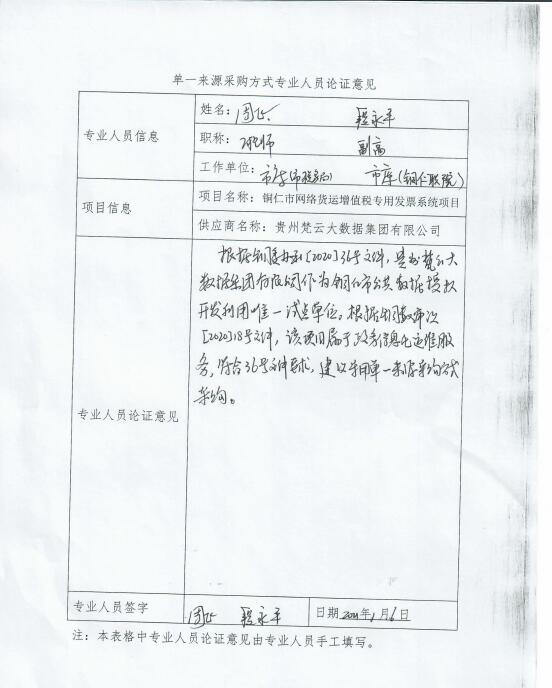 单一来源采购方式专业人员论证意见
专业人员信息
姓名：周 程永平
职称： 副高
工作单位： 市库(铜仁职院)
项目信息
项目名称：铜仁市网络货运增值税专用发票系统项目
供应商名称：贵州梵云大数据集团有限公司
专业人员论证意见
根据铜府办函[2020]36号文件，贵州梵云大
数据集团有限公司作为铜仁市公共数据授权
开发利用唯一试点单位。根据铜数
[2020]18号文件，该项目属于政务信息化运维服
务，符合36号文件要求，建议采用单一来源采购方式
采购。
专业人员签字
周 程永平
日期2021年1月6日
注：本表格中专业人员论证意见由专业人员手工填写。